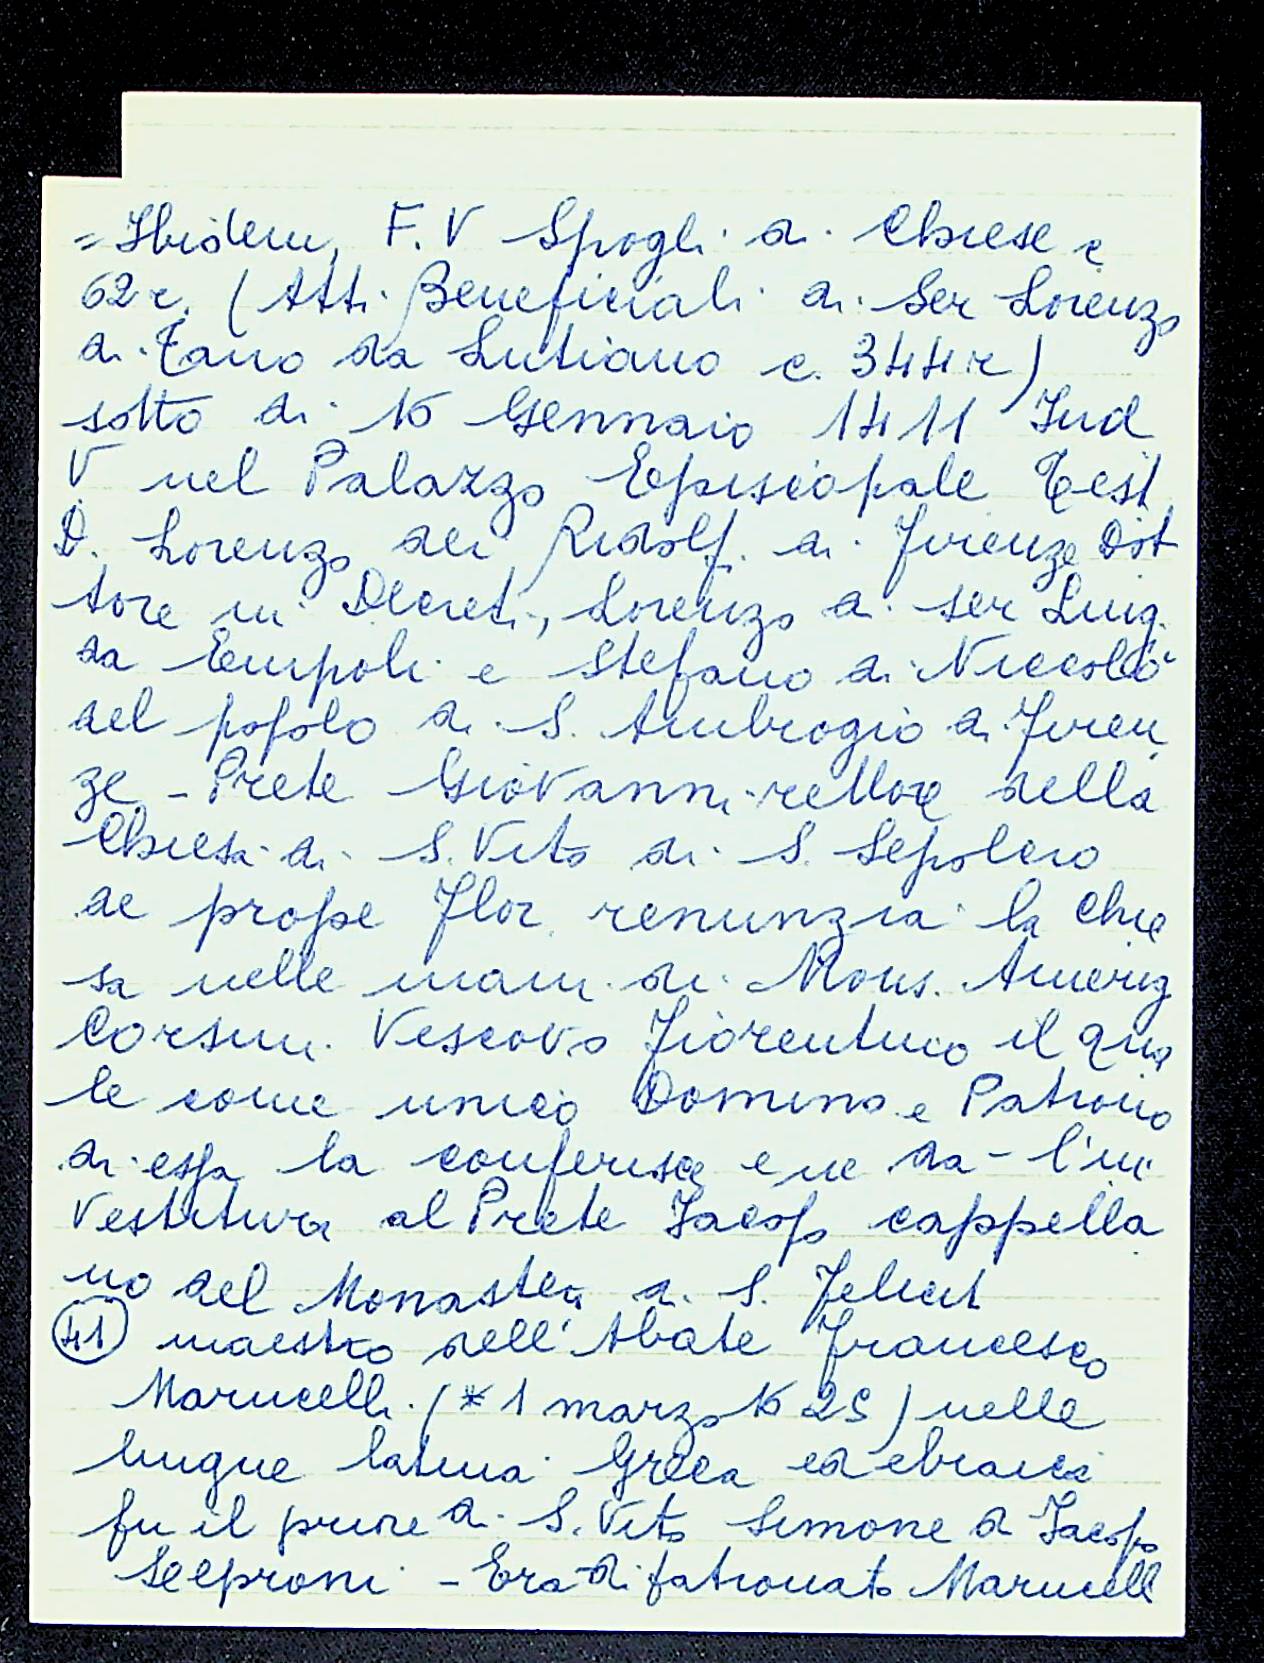 = Ibidem, F. V Spogli di Chiese c
62 r. (Atti Beneficiali di Ser Lorenzo
di Tano da Lutiano c. 344 r)
sotto di 16 Gennaio 1411 Ind
V nel Palazzo Episcopale Test
D. Lorenzo dei Ridolfi di Firenze Dot
tore in Decreti, Lorenzo di ser Luigi
da Empoli e Stefano di Niccolò
del popolo di S. Ambrogio di Firen
ze - Prete Giovanni rettore della
Chiesa di S. Vito di S. Sepolcro
de prope Flor. renunzia la chie
sa nelle mani di Mons. Amerig
Corsini Vescovo Fiorentino il qua
le come unico Domino e Patrono
di essa la conferisce e ne da - l'in
vestitura al Prete Jacopo cappella
no del Monastero di S. Felicit
(41) maestro dell'Abate Francesco
Marucelli (* 1 marzo 1625) nelle
lingue latina Greca ed ebraica
fu il priore di S. Vito Simone d Jacopo
Selproni - Era di patronato Marucell